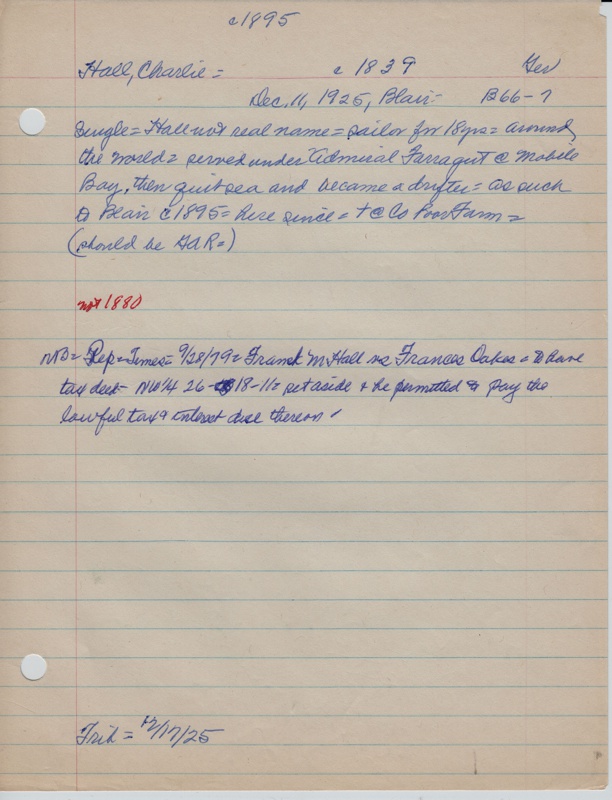 c1895
Hall, Charlie = c 1839 Ger
Dec. 11, 1925, Blair = B66-7
Single = Hall not real name = sailor for 18yrs = around
the world = served under Admiral Farragut @ Mobile
Bay, then quit sea and became a drifter = as such
to Blair c1895 = here since = + @ Co Poor Farm =
(should be GAR =)
not 1880
NB = Rep = Times = 9/28/79 = Frank M Hall vs Frances Oakes = to have
tax deed = NW¼ 26 - 18-11 = set aside & he permitted to pay the
lawful tax & interest due thereon
Trib = 12/17/25